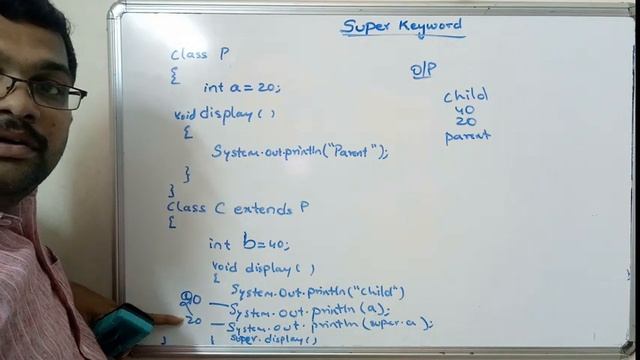 Super Keyword
class P
{
int a=20;
void display()
{
System.out.println("Parent");
}
}
class C extends P
{
int b=40;
void display()
{
System.out.println("child")
20 System.out.println(a);
20 System.out.println(super.a);
} } super.display()
O/P
child
40
20
parent